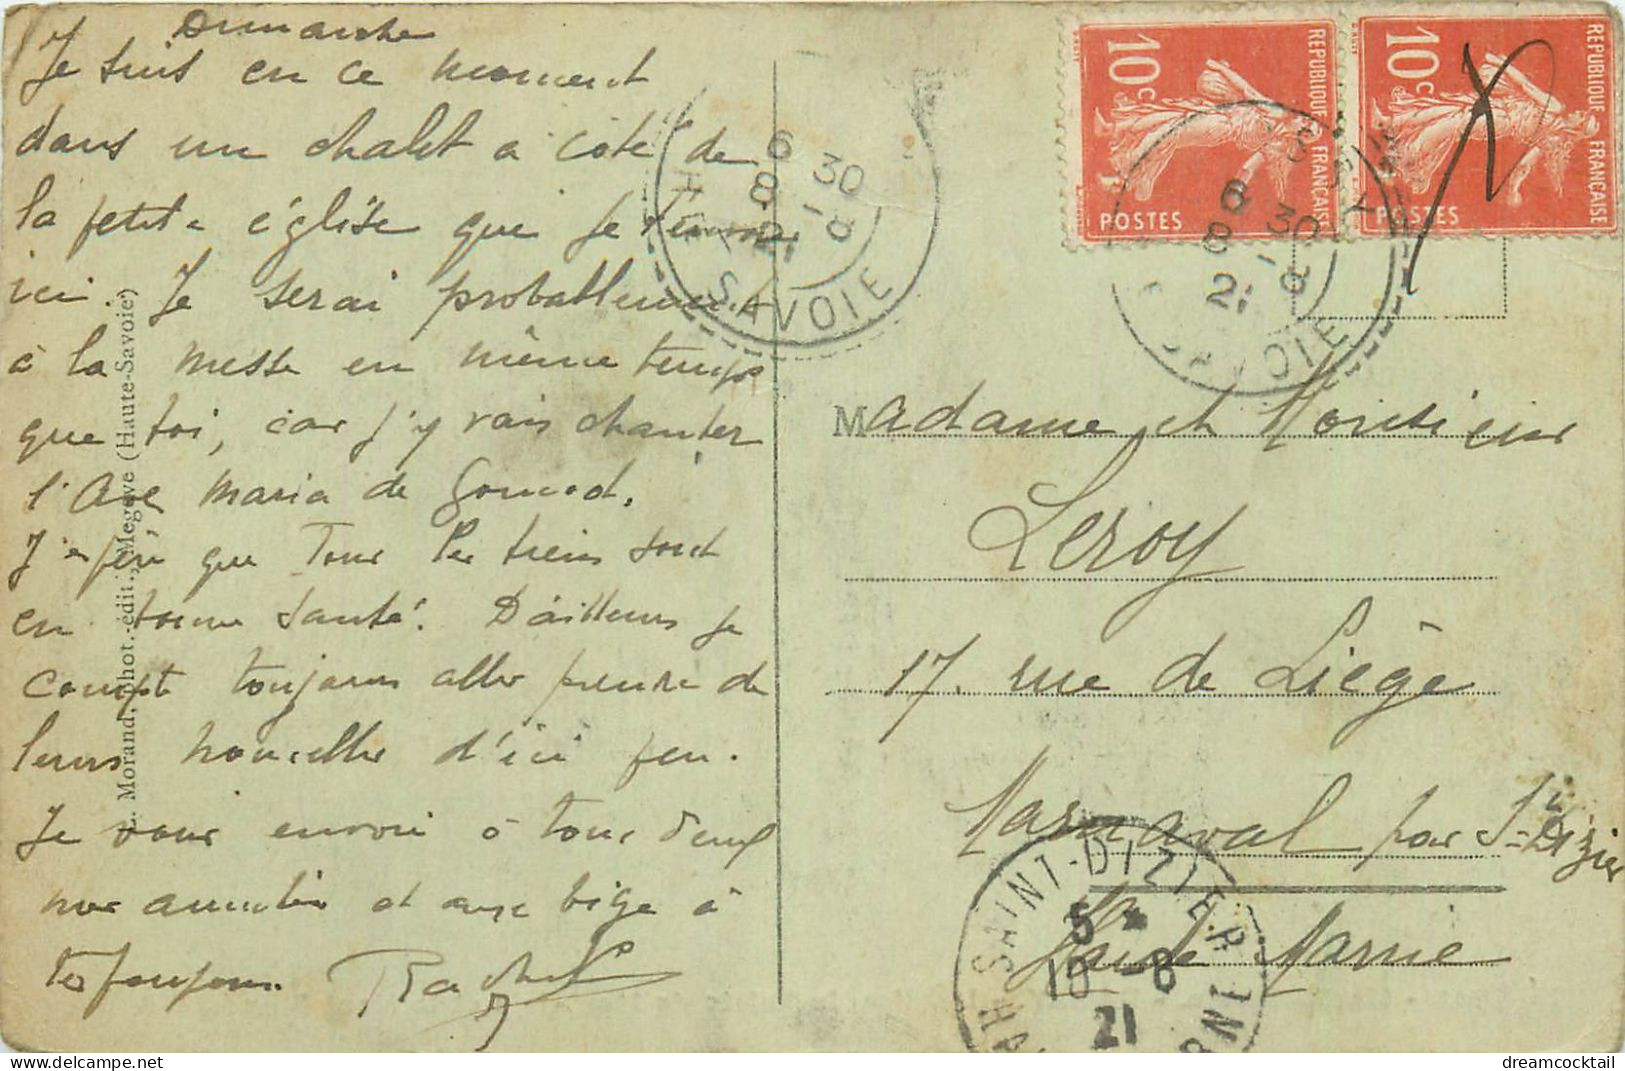 Dimanche
Je suis en ce moment
dans un chalet à côté de
la petite église que je t'envoie
ici. Je serai probablement
à la messe en même temps
que toi, car j'y vais chanter
l'Ave Maria de Gounod.
que Tour les tiens sont
en bonne santé. D'ailleurs je
compte toujours aller prendre de
leurs nouvelles d'ici peu.
Je vous envoie à tous deux
nos amitiés et une bige à
Rachel
E. Morand, phot.-édit., Megève (Haute-Savoie)
6 30
8 -8
21
Hte SAVOIE
REPUBLIQUE FRANÇAISE
10c
POSTES
REPUBLIQUE FRANÇAISE
10c
POSTES
6 30
8 -8
21
SAVOIE
Madame et Monsieur
Leroy
17. rue de Liège
Marnaval par St-Dizier
Haute Marne
SAINT-DIZIER
5 *
10 -8
21
Hte MARNE
dreamcocktail